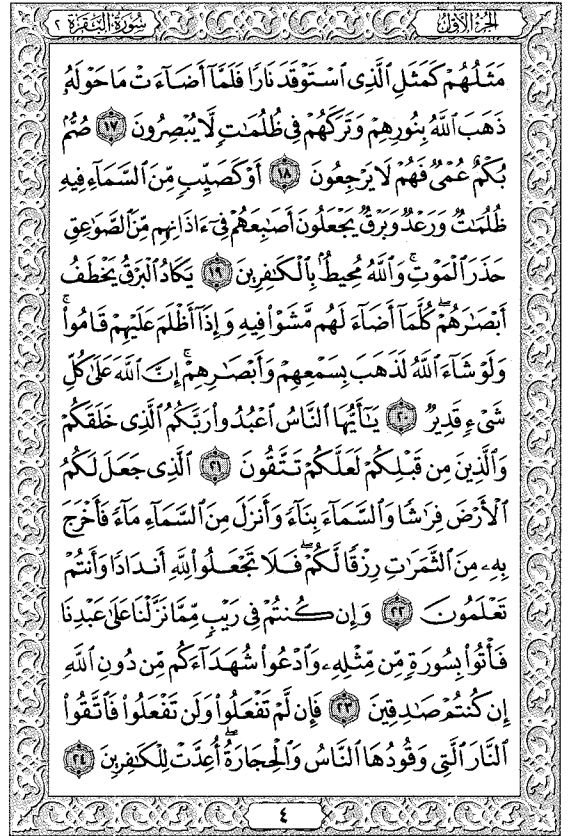 سُورَةُ الْبَقَرَةِ ٢
الجُزْءُ الأَوَّلُ
مَثَلُهُمْ كَمَثَلِ ٱلَّذِى ٱسْتَوْقَدَ نَارًا فَلَمَّآ أَضَآءَتْ مَا حَوْلَهُۥ
ذَهَبَ ٱللَّهُ بِنُورِهِمْ وَتَرَكَهُمْ فِى ظُلُمَـٰتٍ لَّا يُبْصِرُونَ ١٧ صُمٌّۢ
بُكْمٌ عُمْىٌ فَهُمْ لَا يَرْجِعُونَ ١٨ أَوْ كَصَيِّبٍ مِّنَ ٱلسَّمَآءِ فِيهِ
ظُلُمَـٰتٌ وَرَعْدٌ وَبَرْقٌ يَجْعَلُونَ أَصَـٰبِعَهُمْ فِىٓ ءَاذَانِهِم مِّنَ ٱلصَّوَٰعِقِ
حَذَرَ ٱلْمَوْتِ ۚ وَٱللَّهُ مُحِيطٌۢ بِٱلْكَـٰفِرِينَ ١٩ يَكَادُ ٱلْبَرْقُ يَخْطَفُ
أَبْصَـٰرَهُمْ ۖ كُلَّمَآ أَضَآءَ لَهُم مَّشَوْا۟ فِيهِ وَإِذَآ أَظْلَمَ عَلَيْهِمْ قَامُوا۟ ۚ
وَلَوْ شَآءَ ٱللَّهُ لَذَهَبَ بِسَمْعِهِمْ وَأَبْصَـٰرِهِمْ ۚ إِنَّ ٱللَّهَ عَلَىٰ كُلِّ
شَىْءٍ قَدِيرٌ ٢٠ يَـٰٓأَيُّهَا ٱلنَّاسُ ٱعْبُدُوا۟ رَبَّكُمُ ٱلَّذِى خَلَقَكُمْ
وَٱلَّذِينَ مِن قَبْلِكُمْ لَعَلَّكُمْ تَتَّقُونَ ٢١ ٱلَّذِى جَعَلَ لَكُمُ
ٱلْأَرْضَ فِرَٰشًا وَٱلسَّمَآءَ بِنَآءً وَأَنزَلَ مِنَ ٱلسَّمَآءِ مَآءً فَأَخْرَجَ
بِهِۦ مِنَ ٱلثَّمَرَٰتِ رِزْقًا لَّكُمْ ۖ فَلَا تَجْعَلُوا۟ لِلَّهِ أَندَادًا وَأَنتُمْ
تَعْلَمُونَ ٢٢ وَإِن كُنتُمْ فِى رَيْبٍ مِّمَّا نَزَّلْنَا عَلَىٰ عَبْدِنَا
فَأْتُوا۟ بِسُورَةٍ مِّن مِّثْلِهِۦ وَٱدْعُوا۟ شُهَدَآءَكُم مِّن دُونِ ٱللَّهِ
إِن كُنتُمْ صَـٰدِقِينَ ٢٣ فَإِن لَّمْ تَفْعَلُوا۟ وَلَن تَفْعَلُوا۟ فَٱتَّقُوا۟
ٱلنَّارَ ٱلَّتِى وَقُودُهَا ٱلنَّاسُ وَٱلْحِجَارَةُ ۖ أُعِدَّتْ لِلْكَـٰفِرِينَ ٢٤
٤